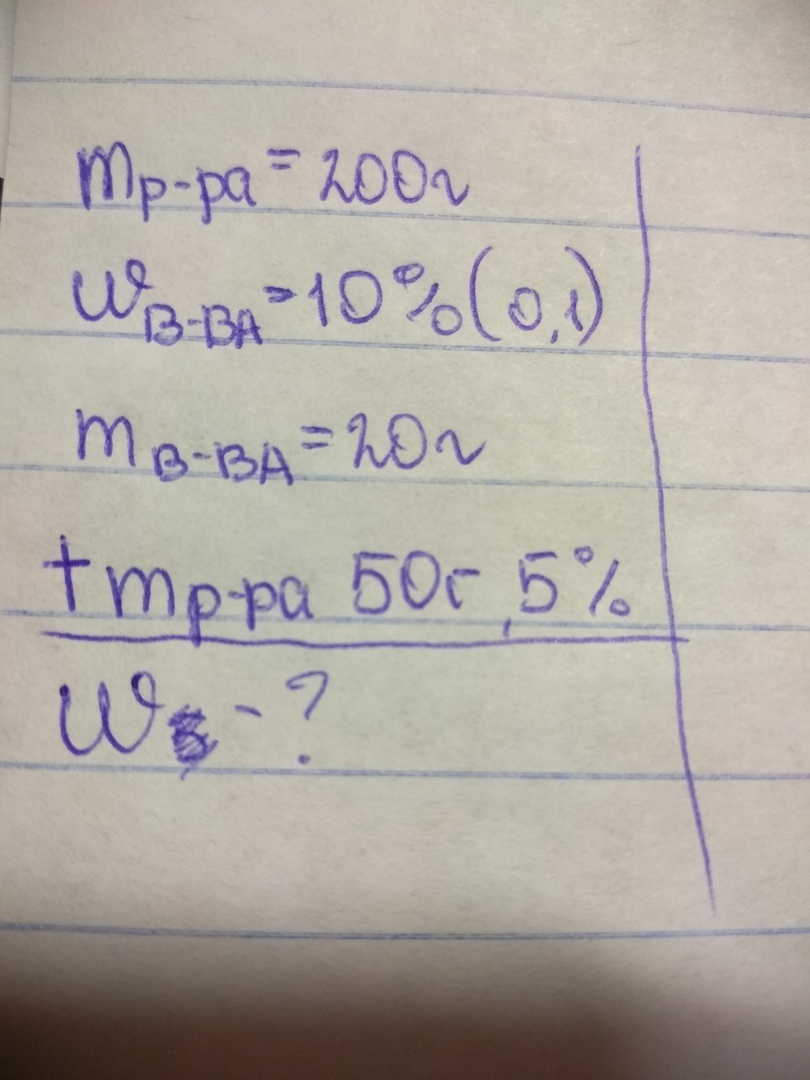 mр-ра = 200г
wВ-ВА = 10% (0,1)
mВ-ВА = 20г
+ mр-ра 50г, 5%
w - ?